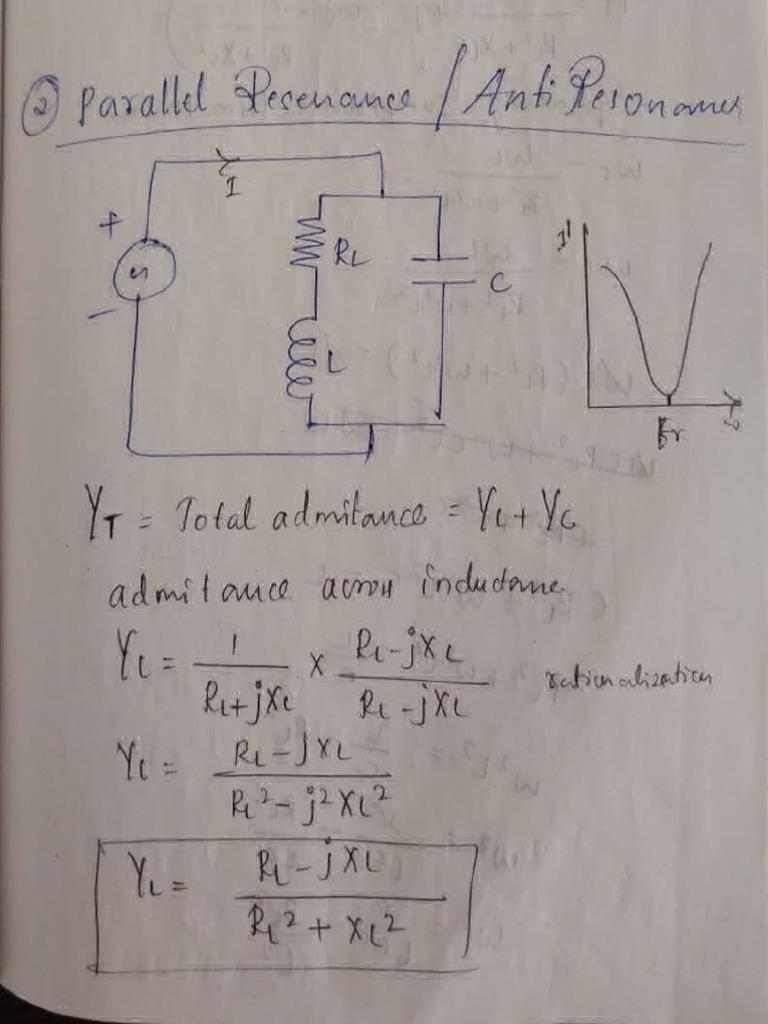 ② Parallel Resenance / Anti Resonance
I
+
S
-
RL
C
L
I
Fr
YT = Total admitance = YL + YC
admitance across inductane
YL = 1 / (RL + jXL) × (RL - jXL) / (RL - jXL) rationalization
YL = (RL - jXL) / (RL² - j²XL²)
YL = (RL - jXL) / (RL² + XL²)